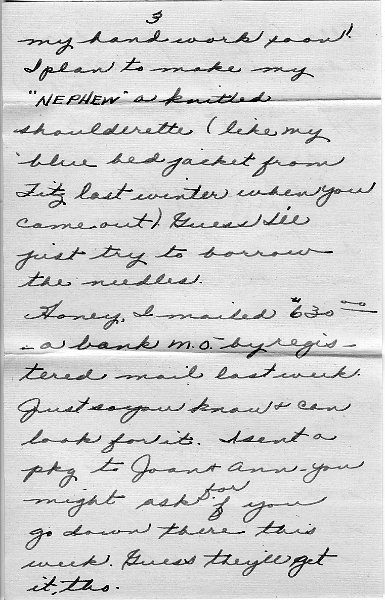 3
my hand work soon!
I plan to make my
"NEPHEW" a knitted
shoulderette (like my
blue bed jacket from
Fitz last winter when you
came out). Guess I'll
just try to borrow
the needles.
Honey, I mailed $630 00
- a bank m.o. - by regis-
tered mail last week.
Just so you know & can
look for it. I sent a
pkg to Joan & Ann - you
might ask for if you
go down there this
week. Guess they'll get
it, tho.